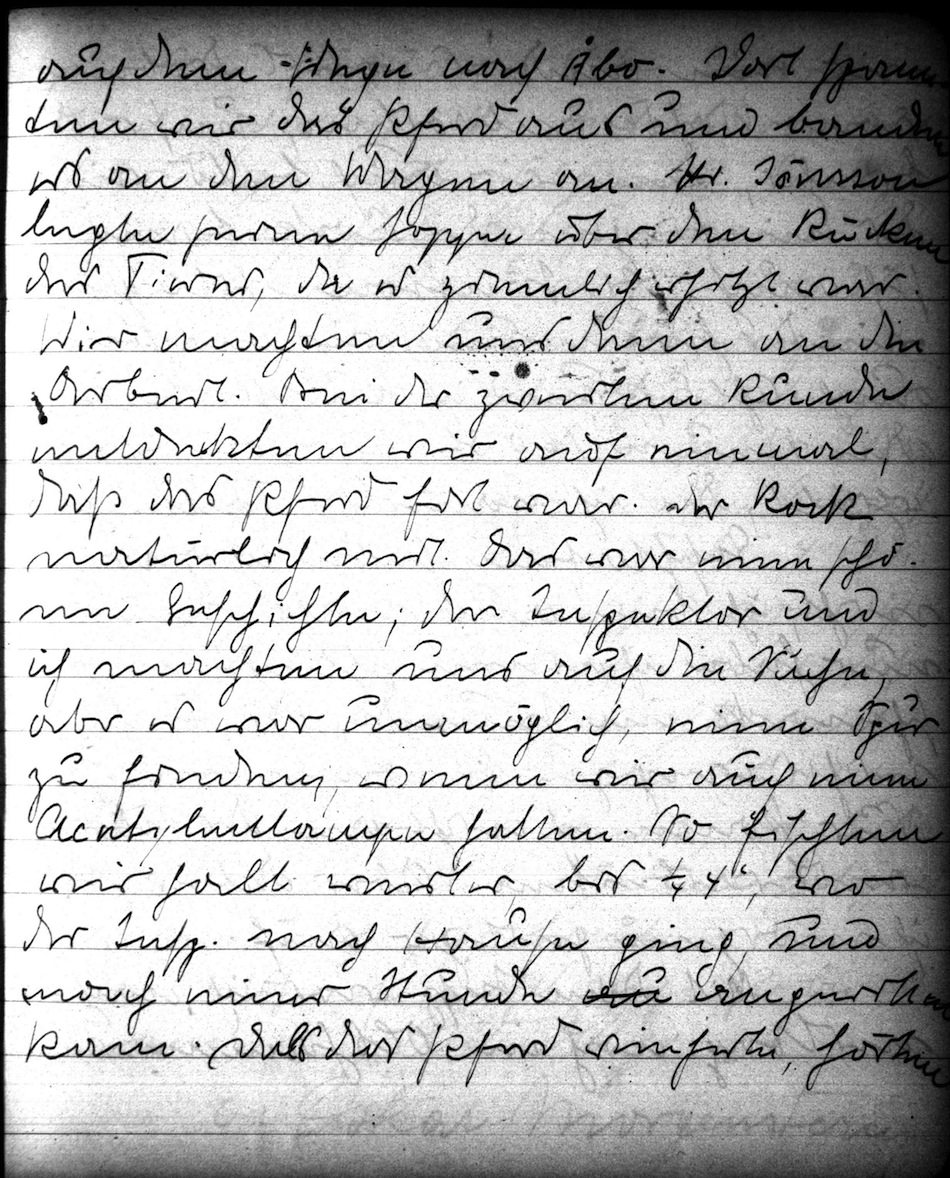 auf dem Wege nach Åbo. Dort spann-
ten wir das Pferd aus und banden
es an den Wagen an. Hr. Jönsson
legte seine Joppe über den Rücken
des Tieres, da es ziemlich erhitzt war.
Wir machten uns dann an die
Arbeit. Bei der zweiten Runde
entdeckten wir auf einmal,
daß das Pferd fort war. der Rock
natürlich mit. Das war eine schö-
ne Geschichte; der Inspektor und
ich machten uns auf die Suche,
aber es war unmöglich, eine Spur
zu finden, wenn wir auch eine
Acetylenlampe hatten. So fischten
wir halt weiter, bis ¼ 4ʰ, wo
der Insp. nach Hause ging, und
nach einer Stunde angeritten
kam. das Pferd wieherte, hörten